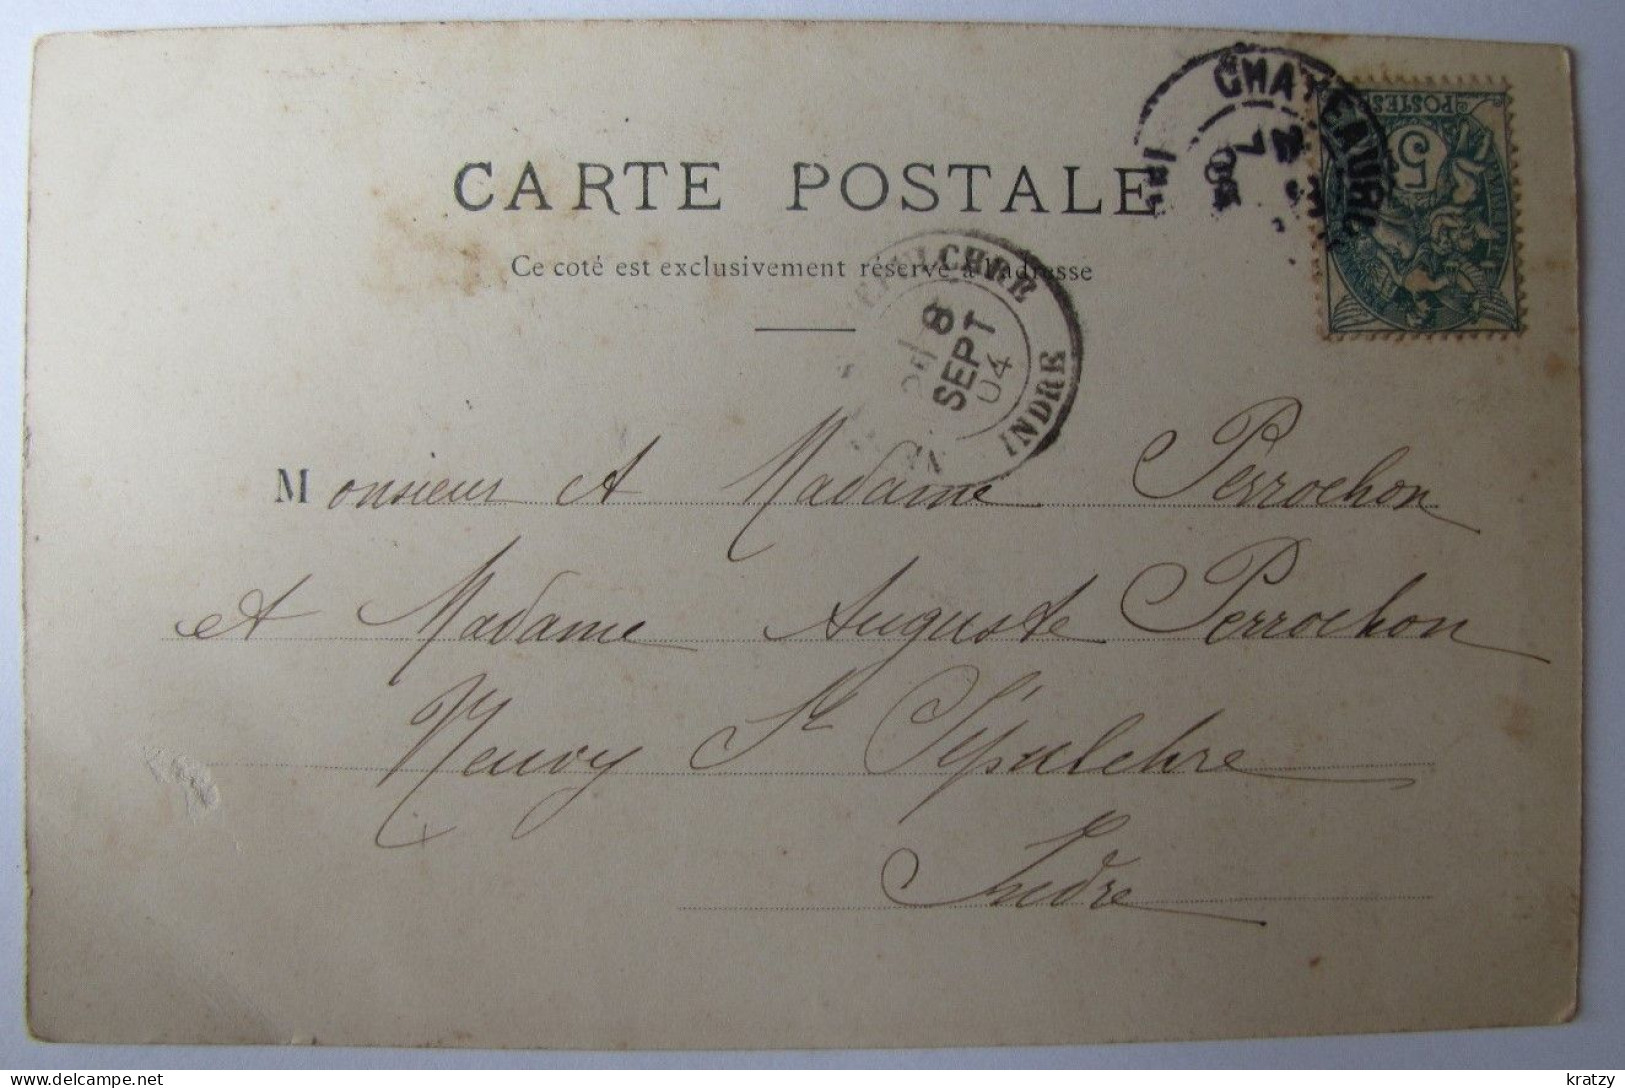 CARTE POSTALE
Ce coté est exclusivement réservé à l'adresse
CHATEAUR
7
04
POSTES
5
CHRE
8
SEPT
04
INDRE
Monsieur et Madame Perrochon
et Madame Auguste Perrochon
Neuvy St Sépulchre
Indre
kratzy